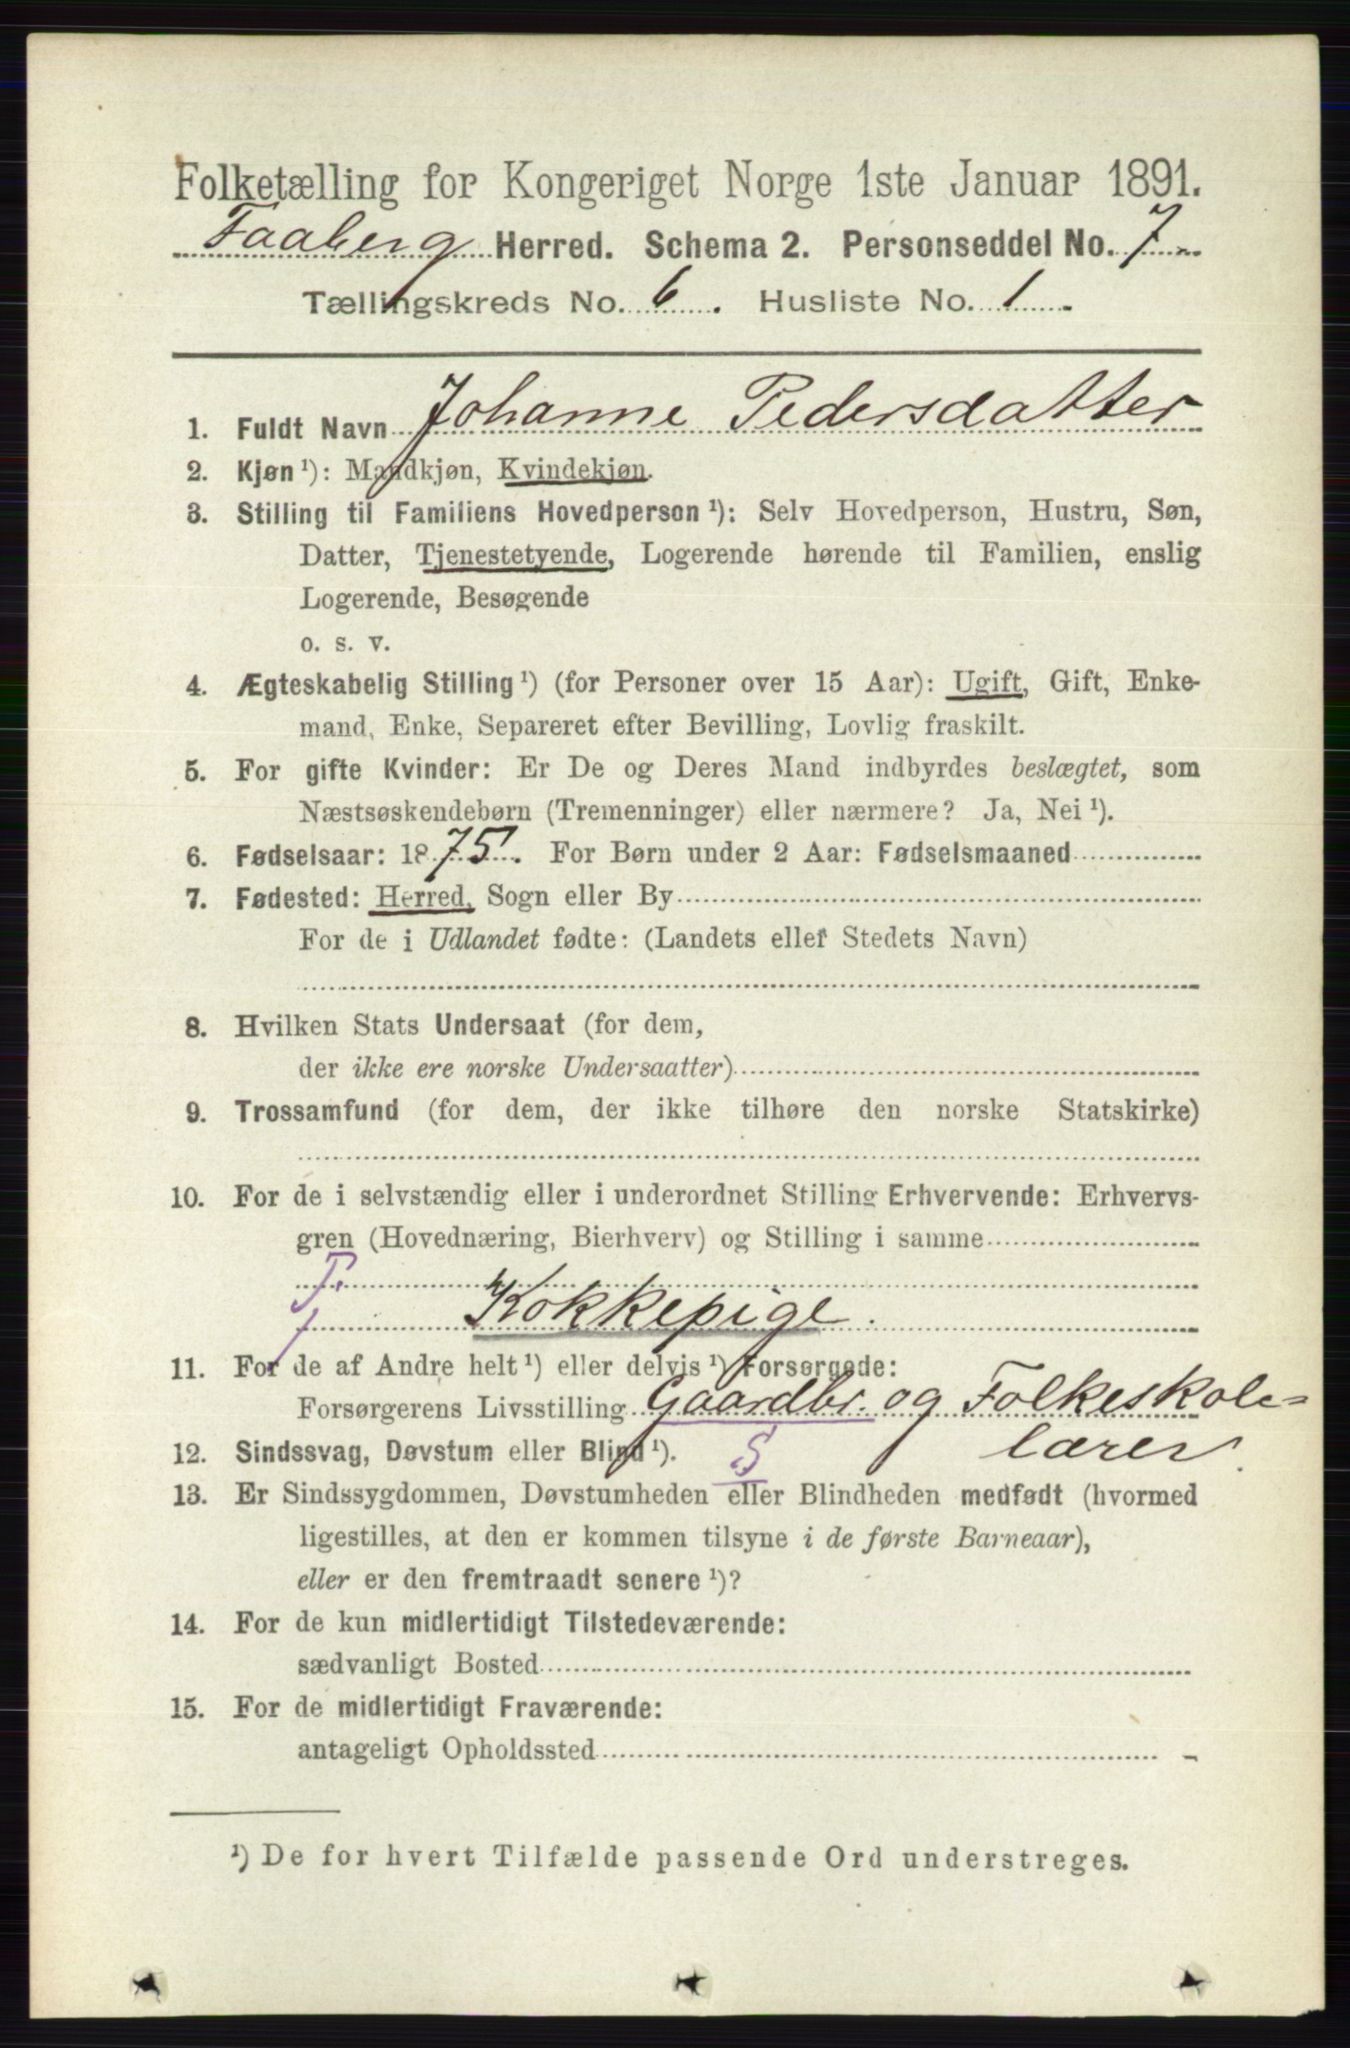 Folketælling for Kongeriget Norge 1ste Januar 1891.
Faaberg Herred. Schema 2. Personseddel No. 7
Tællingskreds No. 6. Husliste No. 1.
1. Fuldt Navn Johanne Pedersdatter
2. Kjøn ¹): Mandkjøn, Kvindekjøn.
3. Stilling til Familiens Hovedperson ¹): Selv Hovedperson, Hustru, Søn,
Datter, Tjenestetyende, Logerende hørende til Familien, enslig
Logerende, Besøgende
o. s. v.
4. Ægteskabelig Stilling ¹) (for Personer over 15 Aar): Ugift, Gift, Enke-
mand, Enke, Separeret efter Bevilling, Lovlig fraskilt.
5. For gifte Kvinder: Er De og Deres Mand indbyrdes beslægtet, som
Næstsøskendebørn (Tremenninger) eller nærmere? Ja, Nei ¹).
6. Fødselsaar: 1875. For Børn under 2 Aar: Fødselsmaaned
7. Fødested: Herred, Sogn eller By
For de i Udlandet fødte: (Landets eller Stedets Navn)
8. Hvilken Stats Undersaat (for dem,
der ikke ere norske Undersaatter)
9. Trossamfund (for dem, der ikke tilhøre den norske Statskirke)
10. For de i selvstændig eller i underordnet Stilling Erhvervende: Erhvervs-
gren (Hovednæring, Bierhverv) og Stilling i samme
Kokkepige.
11. For de af Andre helt ¹) eller delvis ¹) Forsørgede:
Forsørgerens Livsstilling Gaardbr. og Folkeskole-
lærer.
12. Sindssvag, Døvstum eller Blind ¹). S
13. Er Sindssygdommen, Døvstumheden eller Blindheden medfødt (hvormed
ligestilles, at den er kommen tilsyne i de første Barneaar),
eller er den fremtraadt senere ¹)?
14. For de kun midlertidigt Tilstedeværende:
sædvanligt Bosted
15. For de midlertidigt Fraværende:
antageligt Opholdssted
¹) De for hvert Tilfælde passende Ord understreges.